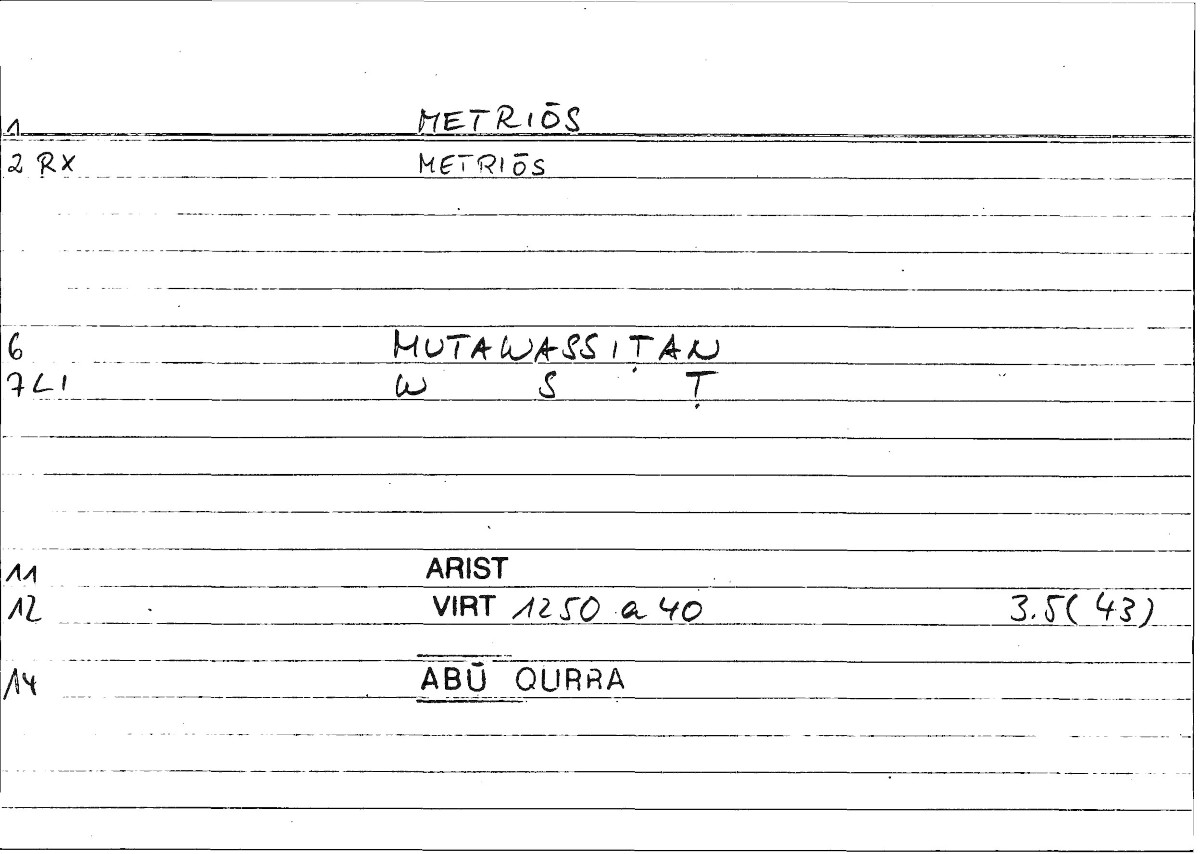 1 METRIŌS
2 RX METRIŌS
6 MUTAWASSIṬAN
7 LI W S Ṭ
11 ARIST
12 VIRT 1250 a 40 3.5(43)
14 ABŪ QURRA